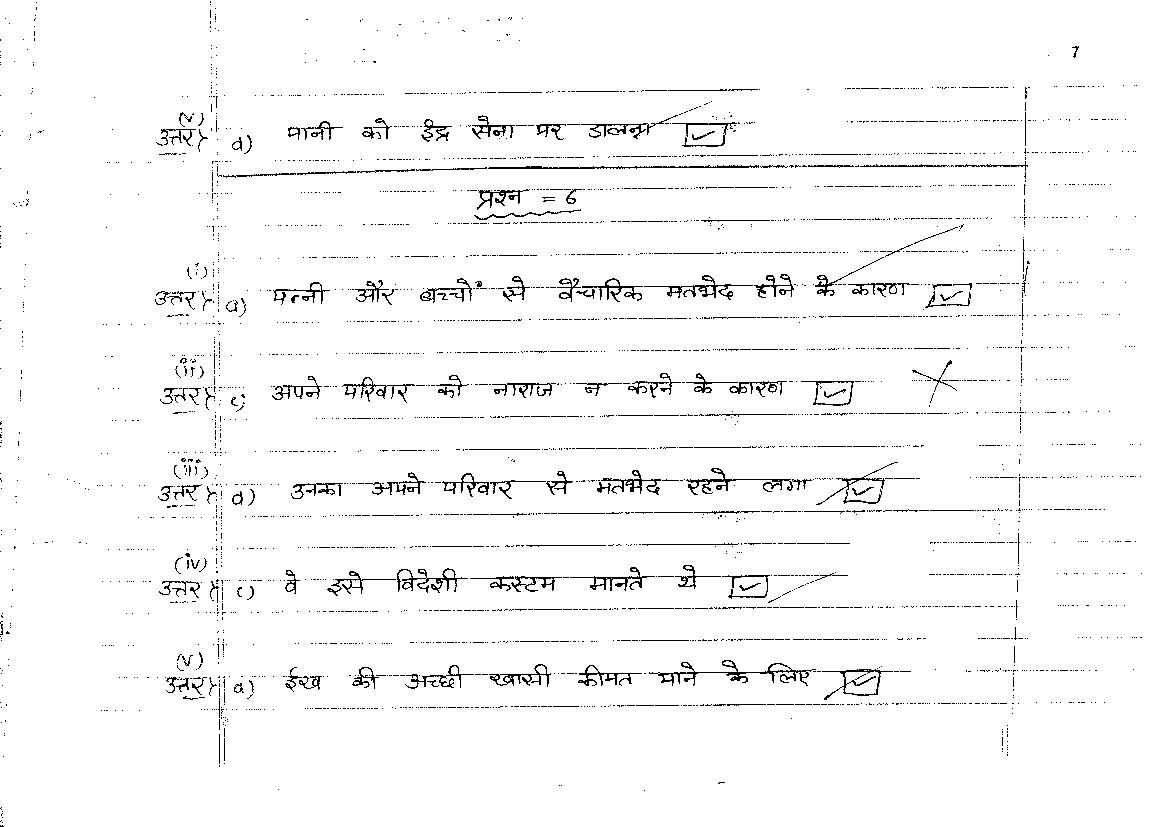 7
(v)
उत्तर > d) पानी को इंद्र सेना पर डालना
प्रश्न = 6
(i)
उत्तर > a) पत्नी और बच्चों से वैचारिक मतभेद होने के कारण
(ii)
उत्तर > c) अपने परिवार को नाराज न करने के कारण
(iii)
उत्तर > d) उनका अपने परिवार से मतभेद रहने लगा
(iv)
उत्तर > c) वे इसे विदेशी कस्टम मानते थे
(v)
उत्तर > a) ईख की अच्छी खासी कीमत पाने के लिए